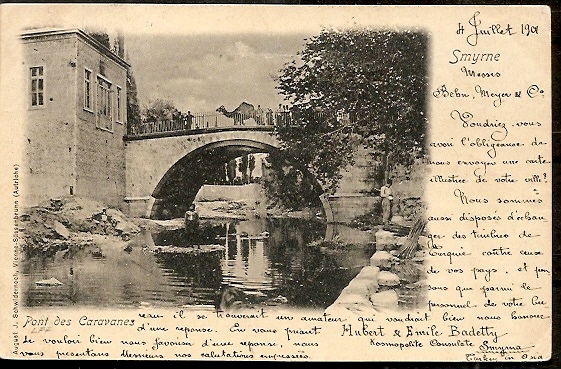 4 Juillet 1901
Smyrne
Messrs
Behn, Meyer & Co.
Voudriez-vous
avoir l'obligeance de
nous envoyer une carte
illustrée de votre ville?
Nous sommes
aussi disposés d'échan
ger des timbres de
Turquie contre ceux
de vos pays, et pen
sons que parmi le
personnel de votre bu
reau il se trouverait un amateur qui voudrait bien nous honorer
d'une réponse. En vous priant
de vouloir bien nous favoriser d'une réponse, nous
vous présentons Messieurs nos salutations empressées.
Hubert & Emile Badetty
Kosmopolite Consulate
Smyrna
Turkey in Asia
Pont des Caravanes
August J. Schneidernoch, Vienne (Autriche)